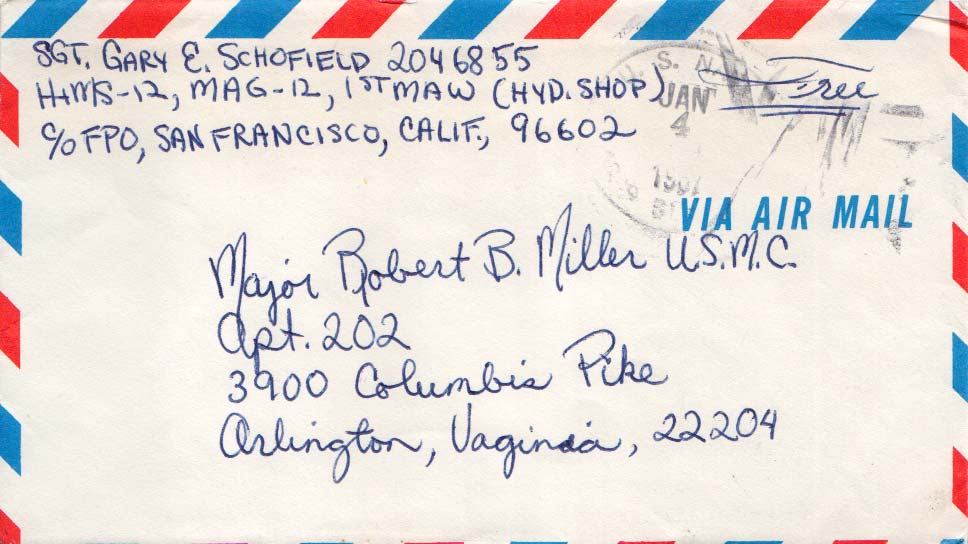 SGT. GARY E. SCHOFIELD 2046855
H+MS-12, MAG-12, 1ST MAW (HYD. SHOP)
C/O FPO, SAN FRANCISCO, CALIF., 96602
Free
S. N
JAN
4
VIA AIR MAIL
Major Robert B. Miller U.S.M.C.
Apt. 202
3900 Columbia Pike
Arlington, Virginia, 22204